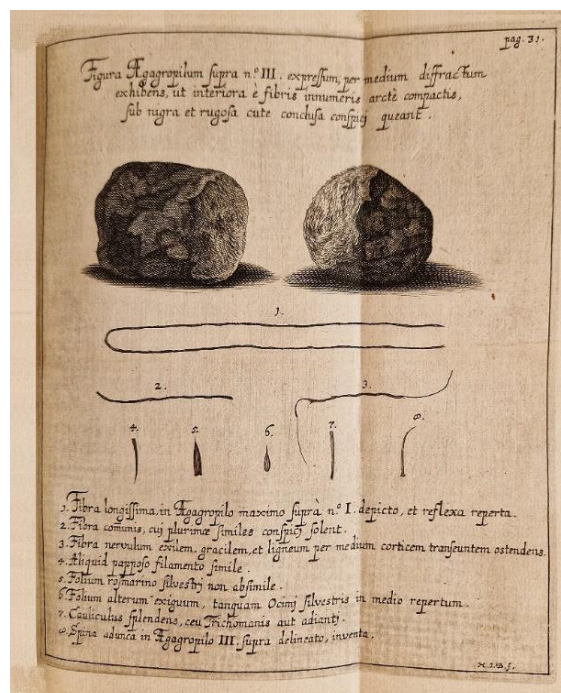 pag. 31.
Figura Ægagropilum supra n.º III. expressum, per medium diffractum
exhibens, ut interiora è fibris innumeris arctè compactis,
sub nigra et rugosa cute conclusa conspici queant.
1.
2.
3.
4.
5.
6.
7.
8.
1. Fibra longissima, in Ægagropilo maximo suprà n.º I. depicto, et reflexa reperta.
2. Fibra cōmunis, cuj plurimæ similes conspicj solent.
3. Fibra nervulum exilem, gracilem, et ligneum per medium corticem transeuntem ostendens.
4. Aliquid papposo filamento simile.
5. Folium rosmarino silvestrj non absimile.
6. Folium alterum exiguum, tanquam Ocimj silvestris in medio repertum.
7. Cauliculus splendens, ceu Trichomanis aut adiantj.
8. Spina adunca in Ægagropilo III. supra delineato, inventa.